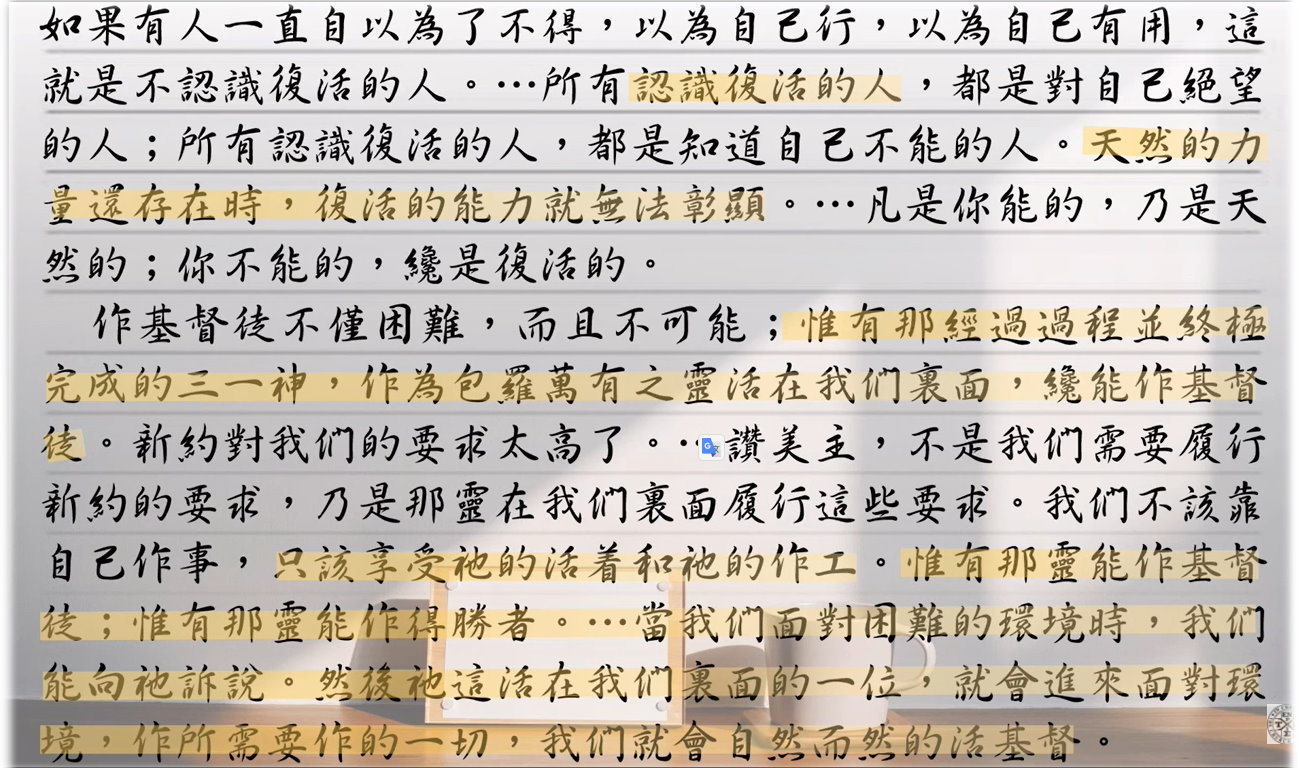 如果有人一直自以為了不得，以為自己行，以為自己有用，這
就是不認識復活的人。…所有認識復活的人，都是對自己絕望
的人；所有認識復活的人，都是知道自己不能的人。天然的力
量還存在時，復活的能力就無法彰顯。…凡是你能的，乃是天
然的；你不能的，纔是復活的。
作基督徒不僅困難，而且不可能；惟有那經過過程並終極
完成的三一神，作為包羅萬有之靈活在我們裏面，纔能作基督
徒。新約對我們的要求太高了。…讚美主，不是我們需要履行
新約的要求，乃是那靈在我們裏面履行這些要求。我們不該靠
自己作事，只該享受祂的活着和祂的作工。惟有那靈能作基督
徒；惟有那靈能作得勝者。…當我們面對困難的環境時，我們
能向祂訴說。然後祂這活在我們裏面的一位，就會進來面對環
境，作所需要作的一切，我們就會自然而然的活基督。